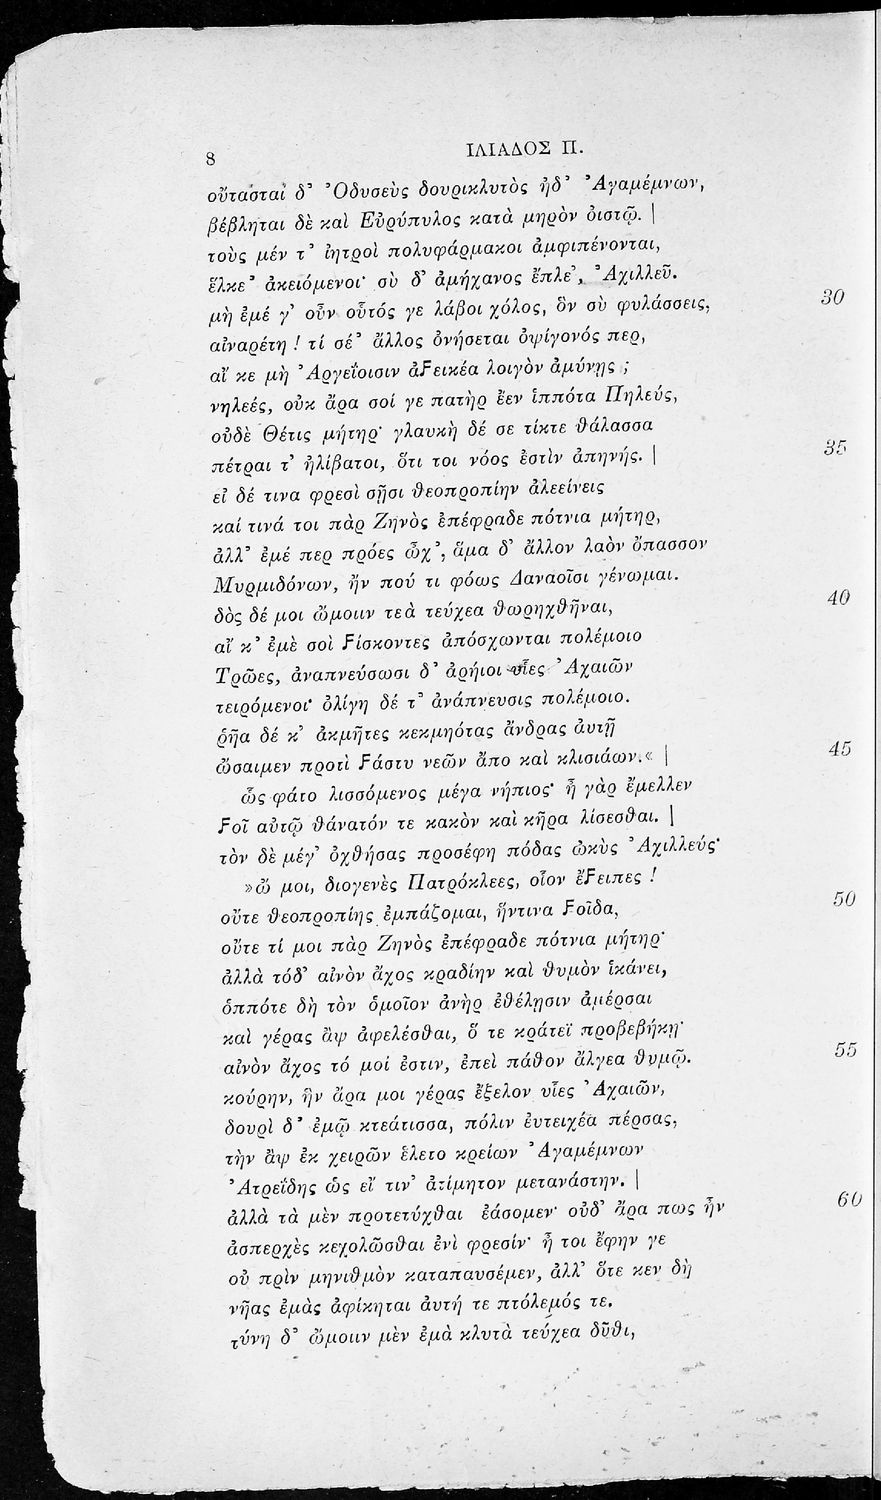 8 ΙΛΙΑΔΟΣ Π.
οὔτασται δ’ Ὀδυσεὺς δουρικλυτὸς ἠδ’ Ἀγαμέμνων,
βέβληται δὲ καὶ Εὐρύπυλος κατὰ μηρὸν ὀιστῷ. |
τοὺς μέν τ’ ἰητροὶ πολυφάρμακοι ἀμφιπένονται,
ἕλκε’ ἀκειόμενοι· σὺ δ’ ἀμήχανος ἔπλε’, Ἀχιλλεῦ.
μὴ ἐμέ γ’ οὖν οὗτός γε λάβοι χόλος, ὃν σὺ φυλάσσεις, 30
αἰναρέτη! τί σέ’ ἄλλος ὀνήσεται ὀψίγονός περ,
αἴ κε μὴ Ἀργεΐοισιν ἀϝεικέα λοιγὸν ἀμύνῃς;
νηλεές, οὐκ ἄρα σοί γε πατὴρ ἔεν ἱππότα Πηλεύς,
οὐδὲ Θέτις μήτηρ· γλαυκὴ δέ σε τίκτε θάλασσα
πέτραι τ’ ἠλίβατοι, ὅτι τοι νόος ἐστὶν ἀπηνής. | 35
εἰ δέ τινα φρεσὶ σῇσι θεοπροπίην ἀλεείνεις
καί τινά τοι πὰρ Ζηνὸς ἐπέφραδε πότνια μήτηρ,
ἀλλ’ ἐμέ περ πρόες ὦχ’, ἅμα δ’ ἄλλον λαὸν ὄπασσον
Μυρμιδόνων, ἤν πού τι φόως Δαναοῖσι γένωμαι.
δὸς δέ μοι ὤμοιιν τεὰ τεύχεα θωρηχθῆναι, 40
αἴ κ’ ἐμὲ σοὶ ϝίσκοντες ἀπόσχωνται πολέμοιο
Τρῶες, ἀναπνεύσωσι δ’ ἀρήιοι υἷες Ἀχαιῶν
τειρόμενοι· ὀλίγη δέ τ’ ἀνάπνευσις πολέμοιο.
ῥῆα δέ κ’ ἀκμῆτες κεκμηότας ἄνδρας ἀυτῇ
ὤσαιμεν προτὶ ϝάστυ νεῶν ἄπο καὶ κλισιάων.« | 45
ὣς φάτο λισσόμενος μέγα νήπιος· ἦ γὰρ ἔμελλεν
ϝοῖ αὐτῷ θάνατόν τε κακὸν καὶ κῆρα λίσεσθαι. |
τὸν δὲ μέγ’ ὀχθήσας προσέφη πόδας ὠκὺς Ἀχιλλεύς·
»ὤ μοι, διογενὲς Πατρόκλεες, οἷον ἔϝειπες!
οὔτε θεοπροπίης ἐμπάζομαι, ἥντινα ϝοῖδα, 50
οὔτε τί μοι πὰρ Ζηνὸς ἐπέφραδε πότνια μήτηρ·
ἀλλὰ τόδ’ αἰνὸν ἄχος κραδίην καὶ θυμὸν ἱκάνει,
ὁππότε δὴ τὸν ὁμοῖον ἀνὴρ ἐθέλῃσιν ἀμέρσαι
καὶ γέρας ἂψ ἀφελέσθαι, ὅ τε κράτεϊ προβεβήκῃ·
αἰνὸν ἄχος τό μοί ἐστιν, ἐπεὶ πάθον ἄλγεα θυμῷ. 55
κούρην, ἣν ἄρα μοι γέρας ἔξελον υἷες Ἀχαιῶν,
δουρὶ δ’ ἐμῷ κτεάτισσα, πόλιν ἐυτειχέα πέρσας,
τὴν ἂψ ἐκ χειρῶν ἕλετο κρείων Ἀγαμέμνων
Ἀτρεΐδης ὡς εἴ τιν’ ἀτίμητον μετανάστην. |
ἀλλὰ τὰ μὲν προτετύχθαι ἐάσομεν· οὐδ’ ἄρα πως ἦν 60
ἀσπερχὲς κεχολῶσθαι ἐνὶ φρεσίν· ἦ τοι ἔφην γε
οὐ πρὶν μηνιθμὸν καταπαυσέμεν, ἀλλ’ ὅτε κεν δὴ
νῆας ἐμὰς ἀφίκηται ἀυτή τε πτόλεμός τε.
τύνη δ’ ὤμοιιν μὲν ἐμὰ κλυτὰ τεύχεα δῦθι,